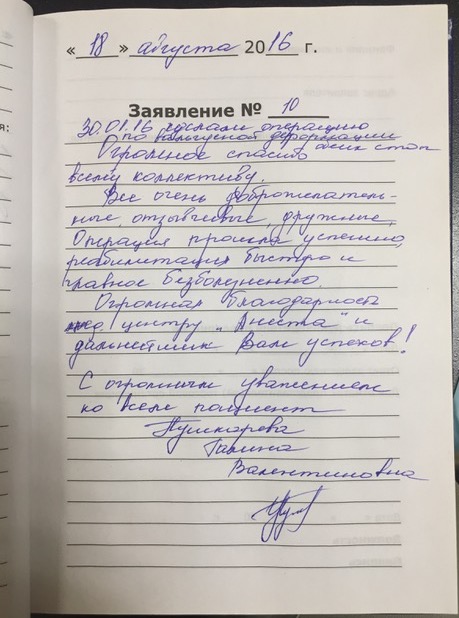 « 18 » августа 2016 г.
Заявление № 10
30.01.16 сделали операцию
по вальгусной деформации
обеих стоп
Огромное спасибо
всему коллективу.
Все очень доброжелатель-
ные, отзывчивые, дружные.
Операция прошла успешно,
реабилитация быстро и
главное безболезненно.
Огромная благодарность
мед. центру „Аниста" и
дальнейших Вам успехов!
С огромным уважением
ко всем пациент
Пушкарева
Галина
Валентиновна